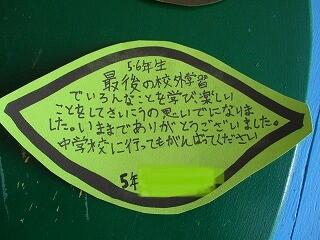 5・6年生
最後の校外学習
でいろんなことを学び楽しい
ことをしてさいこうの思いでになりま
した。いままでありがとうございました。
中学校に行ってもがんばってください
5年